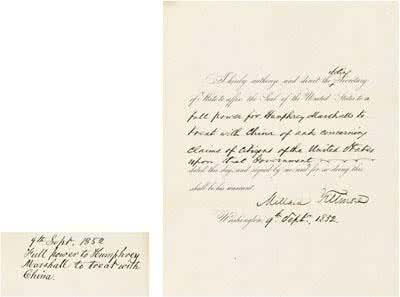 Acting
I hereby authorize and direct the Secretary
of State to affix the Seal of the United States to a
full power for Humphrey Marshall to
treat with China of and concerning
Claims of Citizens of the United States
upon that Government
dated this day, and signed by me; and for so doing this
shall be his warrant.
Millard Fillmore
Washington, 9th Sept. 1852
9th Sept. 1852
Full power to Humphrey
Marshall to treat with
China.